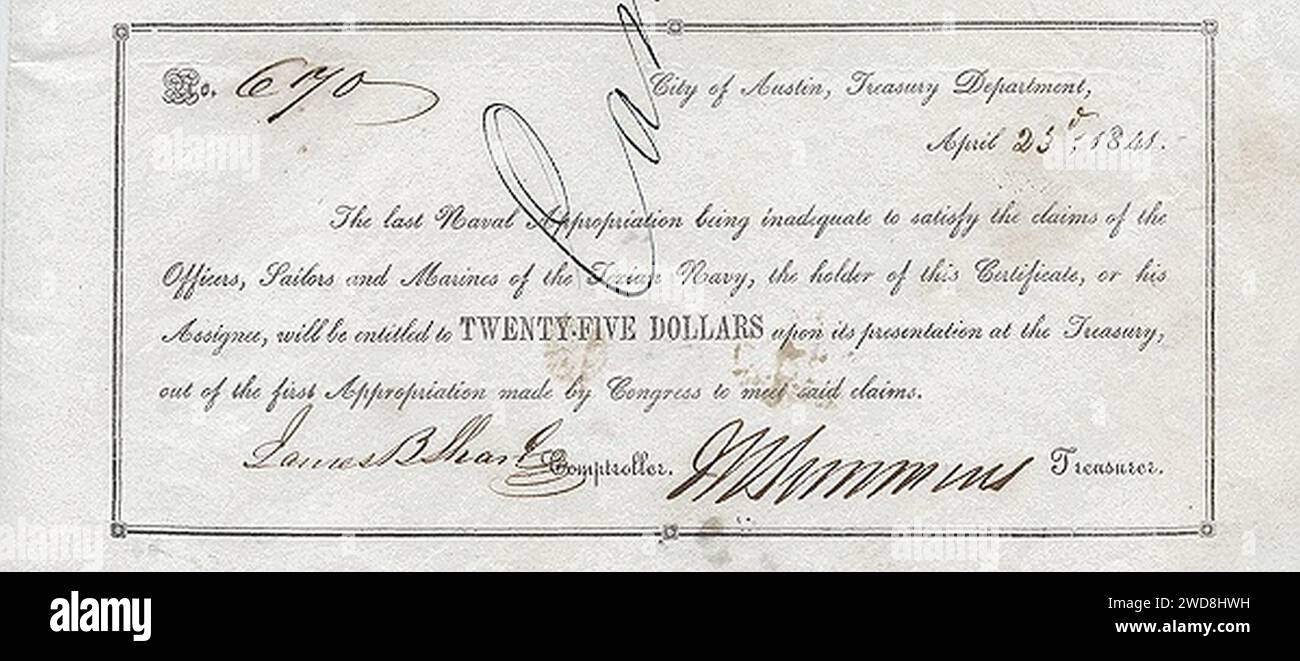 No. 670
City of Austin, Treasury Department,
April 23d, 1841.
The last Naval Appropriation being inadequate to satisfy the claims of the
Officers, Sailors and Marines of the Texian Navy, the holder of this Certificate, or his
Assignee, will be entitled to TWENTY-FIVE DOLLARS upon its presentation at the Treasury,
out of the first Appropriation made by Congress to meet said claims.
James B Shaw Comptroller. Simmons Treasurer.
alamy
Image ID: 2WD8HWH
www.alamy.com